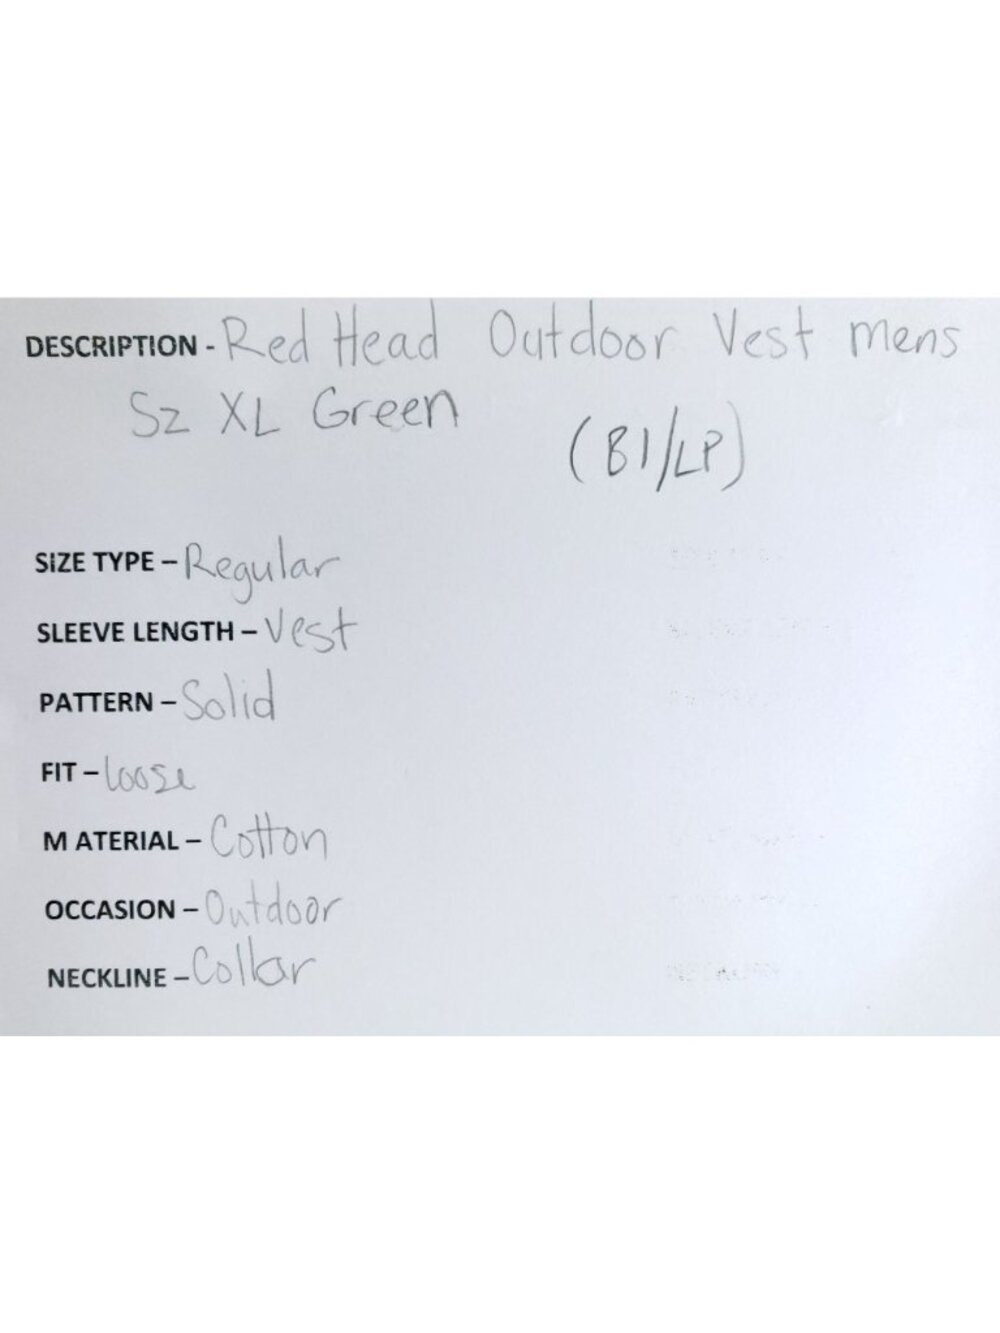 DESCRIPTION - Red Head Outdoor Vest mens
Sz XL Green
(B1/LP)
SIZE TYPE – Regular
SLEEVE LENGTH – Vest
PATTERN – Solid
FIT – loose
M ATERIAL – Cotton
OCCASION – Outdoor
NECKLINE – Collar